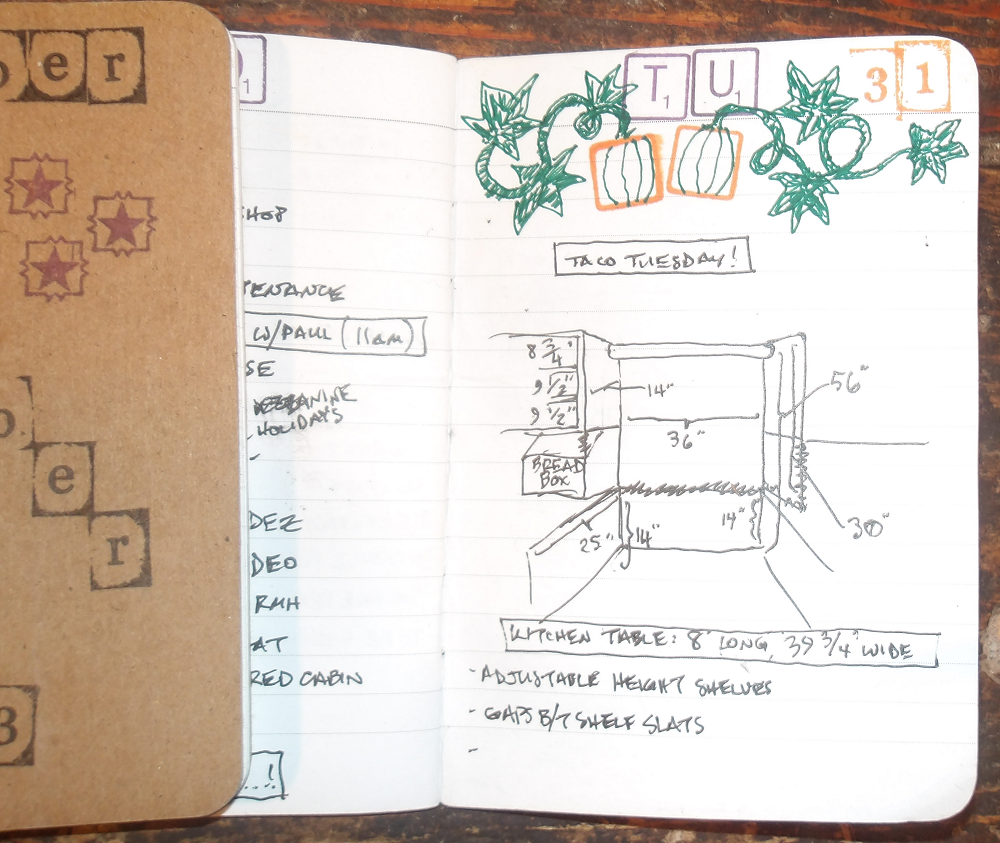 ber
o
e
r
3
1
SHOP
TENANCE
W/PAUL (11am)
SE
HOLIDAYS
-
DEZ
DEO
RMH
AT
RED CABIN
...!
TU 31
1 1
TACO TUESDAY!
8 3/4"
9 1/2"
9 1/2"
14"
36"
56"
BREAD
BOX
25"
14"
14"
30"
KITCHEN TABLE: 8' LONG, 39 3/4" WIDE
- ADJUSTABLE HEIGHT SHELVES
- GAPS B/T SHELF SLATS
-